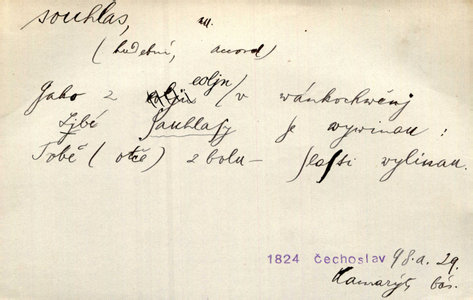 souhlas, m.
(hudební, accord)
Jako z eoljn/ v wánkochwěnj
Ljbé Sauhlasy se wywinau:
Tobě (otče) z bolu – slasti wylinau.
1824 Čechoslav 98.a.29.
Kamarýt bás.